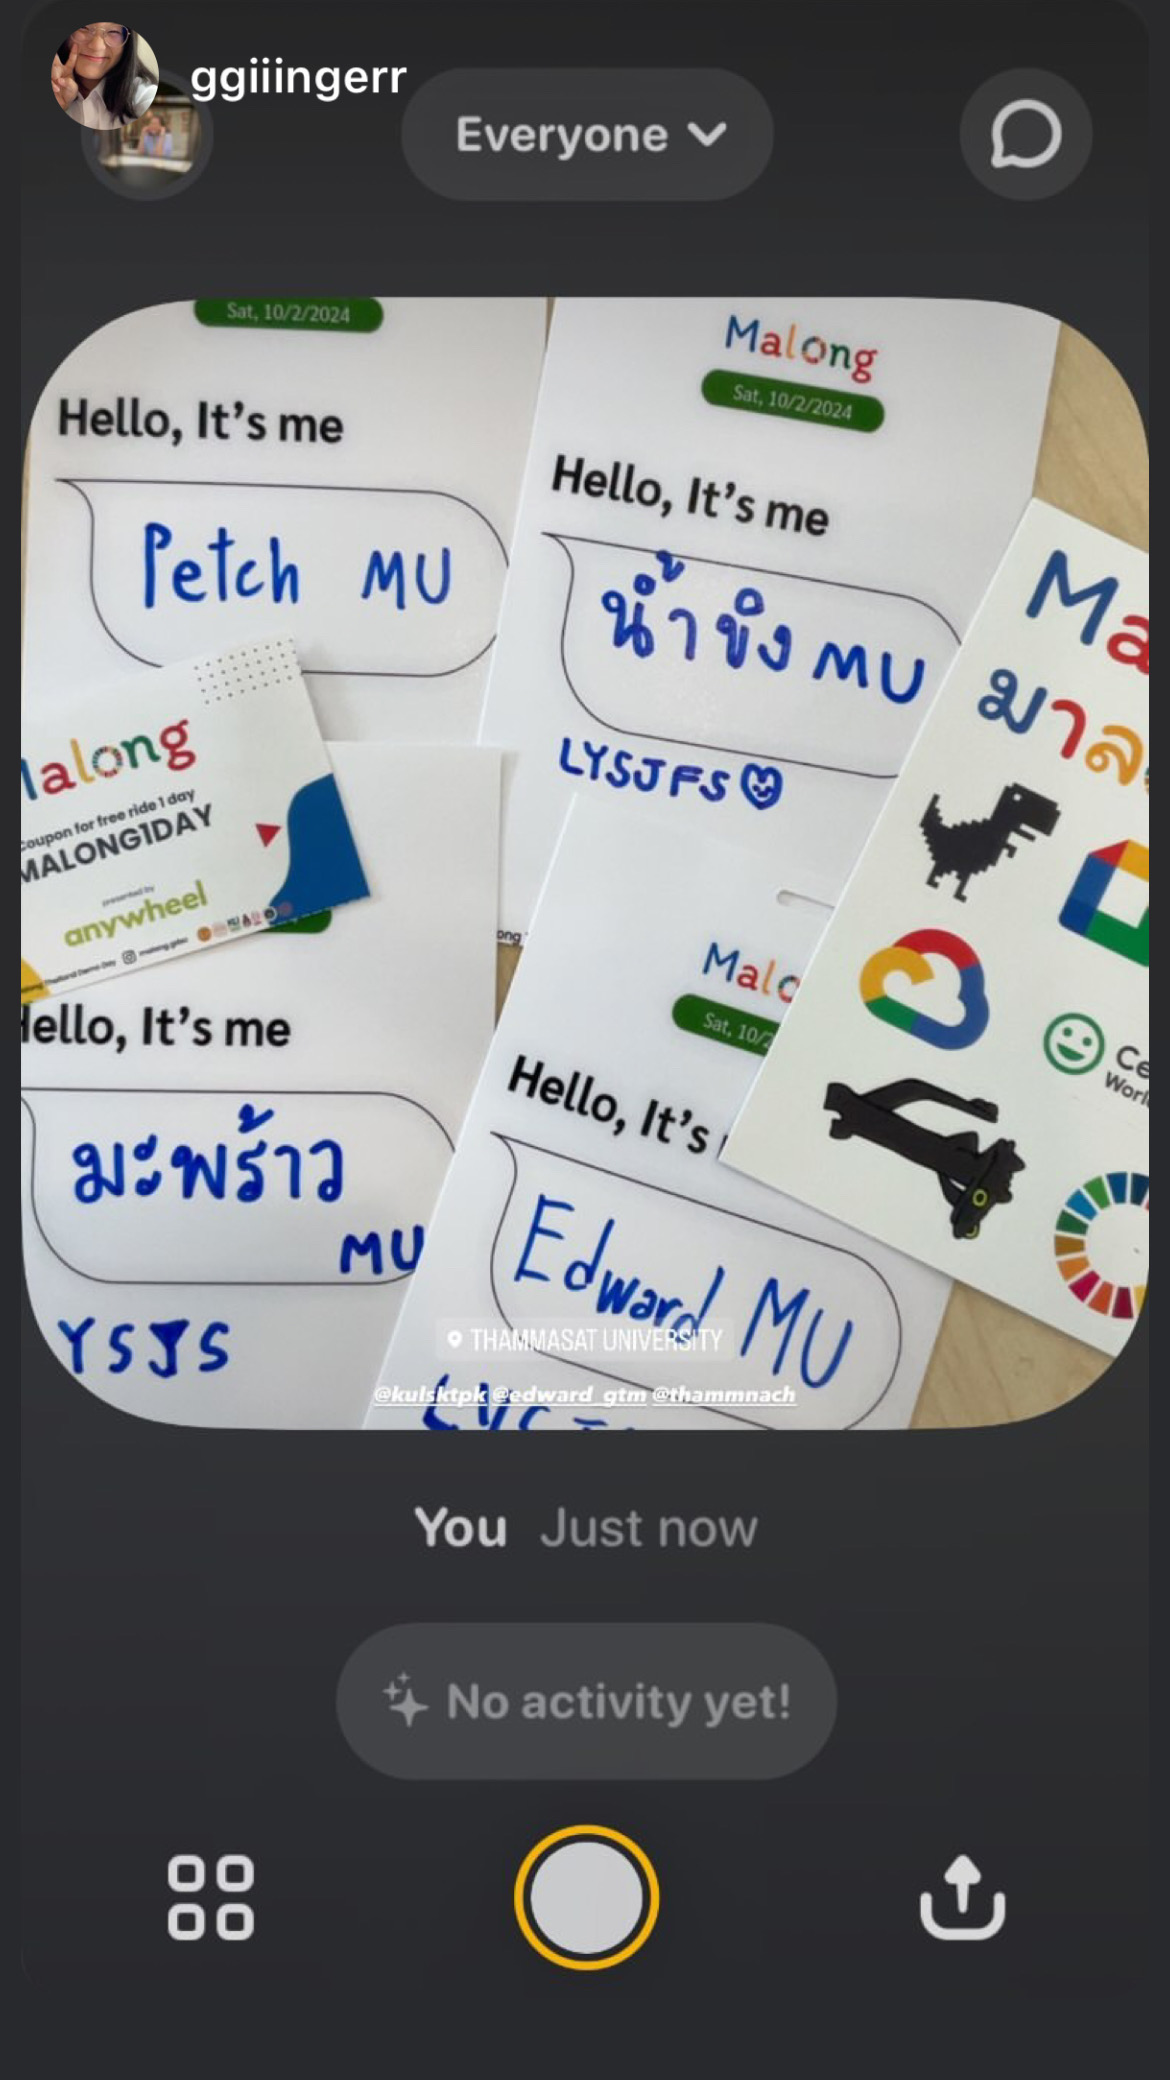 ggiiingerr
Everyone
Sat, 10/2/2024
Hello, It's me
Petch MU
Malong
Sat, 10/2/2024
Hello, It's me
น้ำขิง MU
LYSJFS
Ma
มาล
Malong
coupon for free ride 1 day
MALONG1DAY
presented by
anywheel
Hello, It's me
มะพร้าว
MU
YSJS
Malo
Sat, 10/2
Hello, It's
Edward MU
Ce
Worl
THAMMASAT UNIVERSITY
@kulsktpk @edward_gtm @thammnach
You Just now
No activity yet!